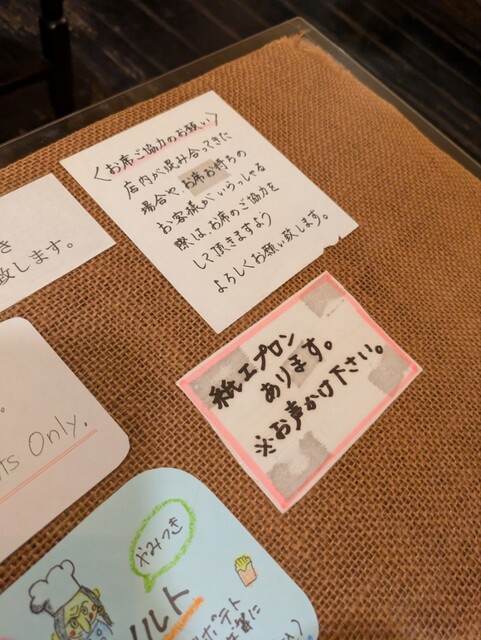 〈お席ご協力のお願い〉
店内が混み合ってきた
場合や、お席お待ちの
お客様がいらっしゃる
際は、お席のご協力を
して頂きますよう
よろしくお願い致します。
き
致します。
紙エプロン
あります。
※お声かけ下さい。
ts Only.
やみつき
ルト
ポテト